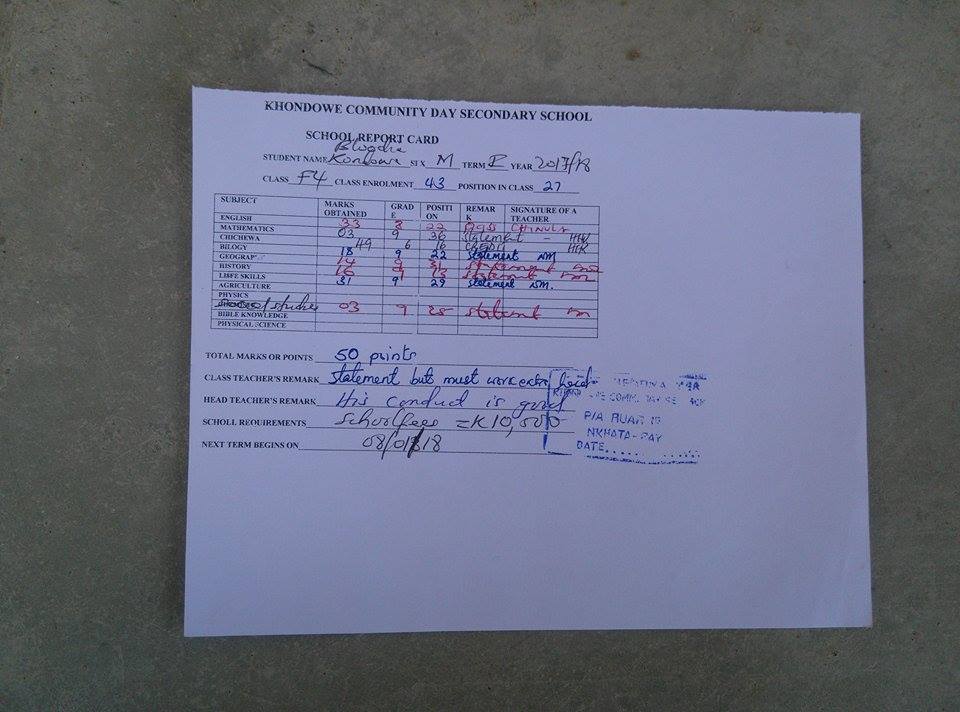 KHONDOWE COMMUNITY DAY SECONDARY SCHOOL
SCHOOL REPORT CARD
STUDENT NAME SEX M TERM I YEAR 2017/18
CLASS F4 CLASS ENROLMENT 43 POSITION IN CLASS 27
SUBJECT MARKS OBTAINED GRADE POSITION REMARK SIGNATURE OF A TEACHER
ENGLISH 33 8 22 CHINULA
MATHEMATICS 03 9 36 statement - HHK
CHICHEWA 49 6 16 CREDIT HHK
BILOGY 18 9 22 statement NM
GEOGRAP 14 9 31 statement
HISTORY 16 9 13 statement
LIFE SKILLS 31 9 29 statement NM.
AGRICULTURE
PHYSICS
social studies 03 9 28 statement
BIBLE KNOWLEDGE
PHYSICAL SCIENCE
TOTAL MARKS OR POINTS 50 points
CLASS TEACHER'S REMARK statement but must work extra hard
HEAD TEACHER'S REMARK His conduct is good
SCHOLL REQUIREMENTS School fees =K10,500
NEXT TERM BEGINS ON 08/01/18
P/A RUAR
NKHATA-BAY
DATE